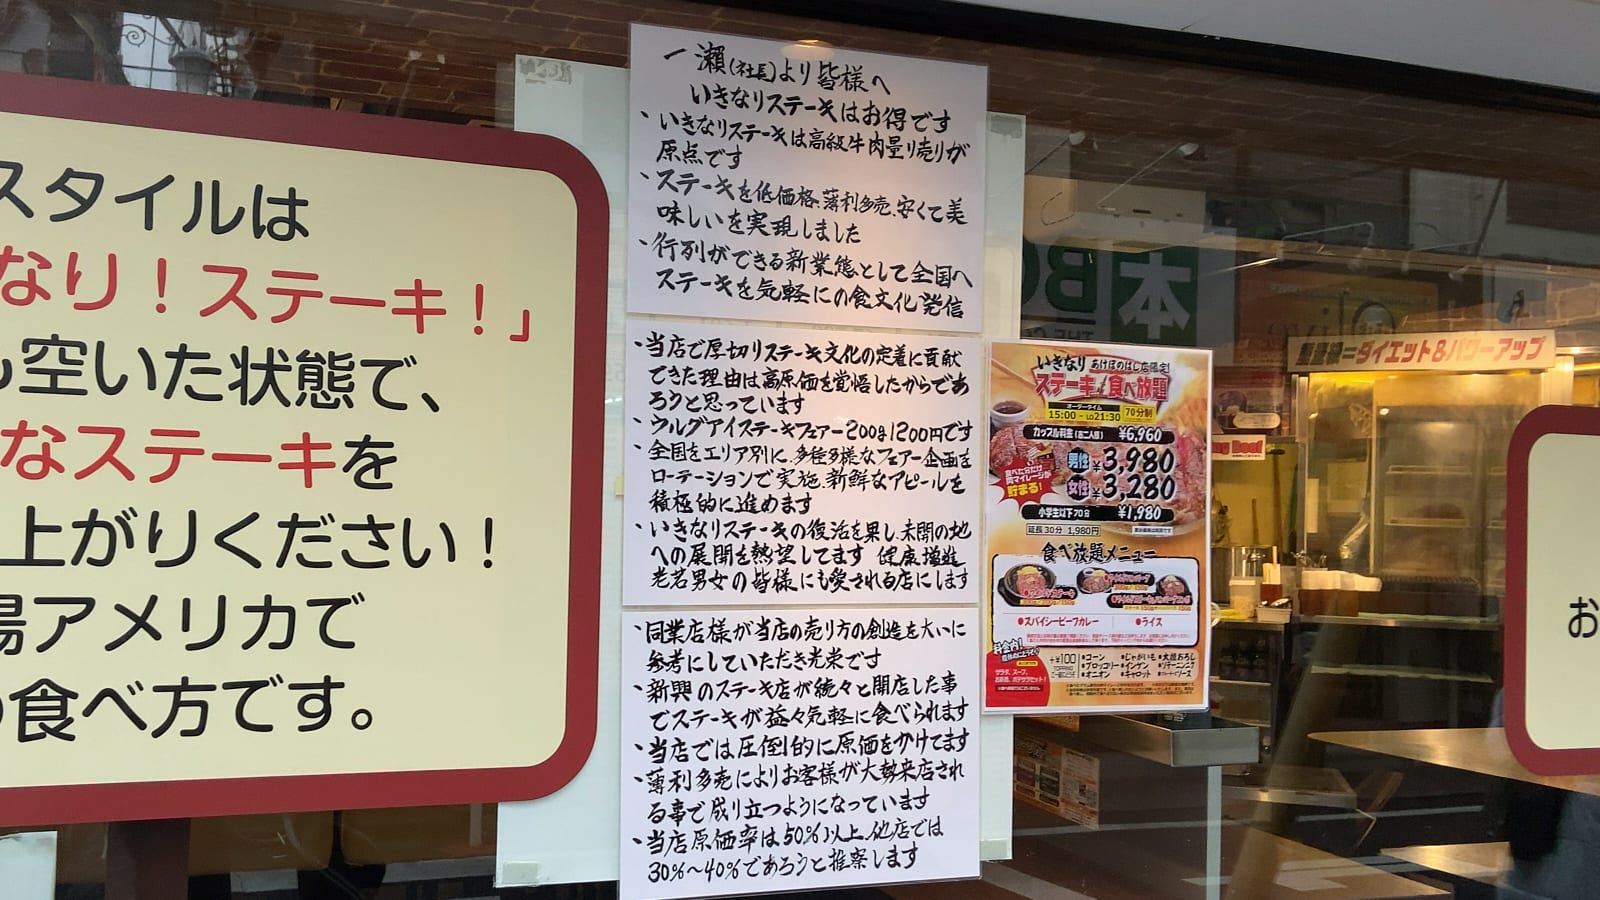 スタイルは
なり！ステーキ！」
も空いた状態で、
なステーキを
上がりください！
場アメリカで
の食べ方です。
一瀬(社長)より皆様へ
いきなりステーキはお得です
・いきなりステーキは高級牛肉量り売りが
原点です
・ステーキを低価格、薄利多売、安くて美
味しいを実現しました
・行列ができる新業態として全国へ
ステーキを気軽にの食文化発信
・当店で厚切りステーキ文化の定着に貢献
できた理由は高原価を覚悟したからであ
ろうと思っています
・ウルグアイステーキフェアー200g1200円です
・全国をエリア別に、多種多様なフェアー企画を
ローテーションで実施、新鮮なアピールを
積極的に進めます
・いきなりステーキの復活を果し、未開の地
への展開を熱望してます 健康増進
老若男女の皆様にも愛される店にします
・同業店様が当店の売り方の創造を大いに
参考にしていただき光栄です
・新興のステーキ店が続々と開店した事
でステーキが益々気軽に食べられます
・当店では圧倒的に原価をかけてます
・薄利多売によりお客様が大勢来店され
る事で成り立つようになっています
・当店原価率は50%以上、他店では
30%〜40%であろうと推察します
いきなり あけぼのばし店限定！
ステーキ食べ放題
オーダータイム
15:00 - LO21:30 70分制
カップル料金(お二人様) ¥6,960
男性 ¥3,980
女性 ¥3,280
食べた分だけ
肉マイレージが
貯まる！
小学生以下70分 ¥1,980
延長30分 1,980円
食べ放題メニュー
●スパイシービーフカレー ●ライス
+¥100
●コーン ●じゃがいも ●大根おろし
●ブロッコリー ●インゲン
●オニオン ●キャロット
本
BO
Olive
=ダイエット&パワーアップ
お